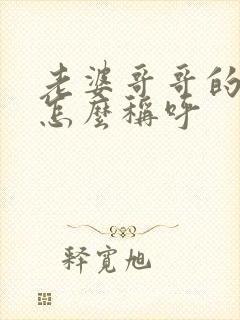 老婆哥哥的
怎麼稱呼
释寬旭